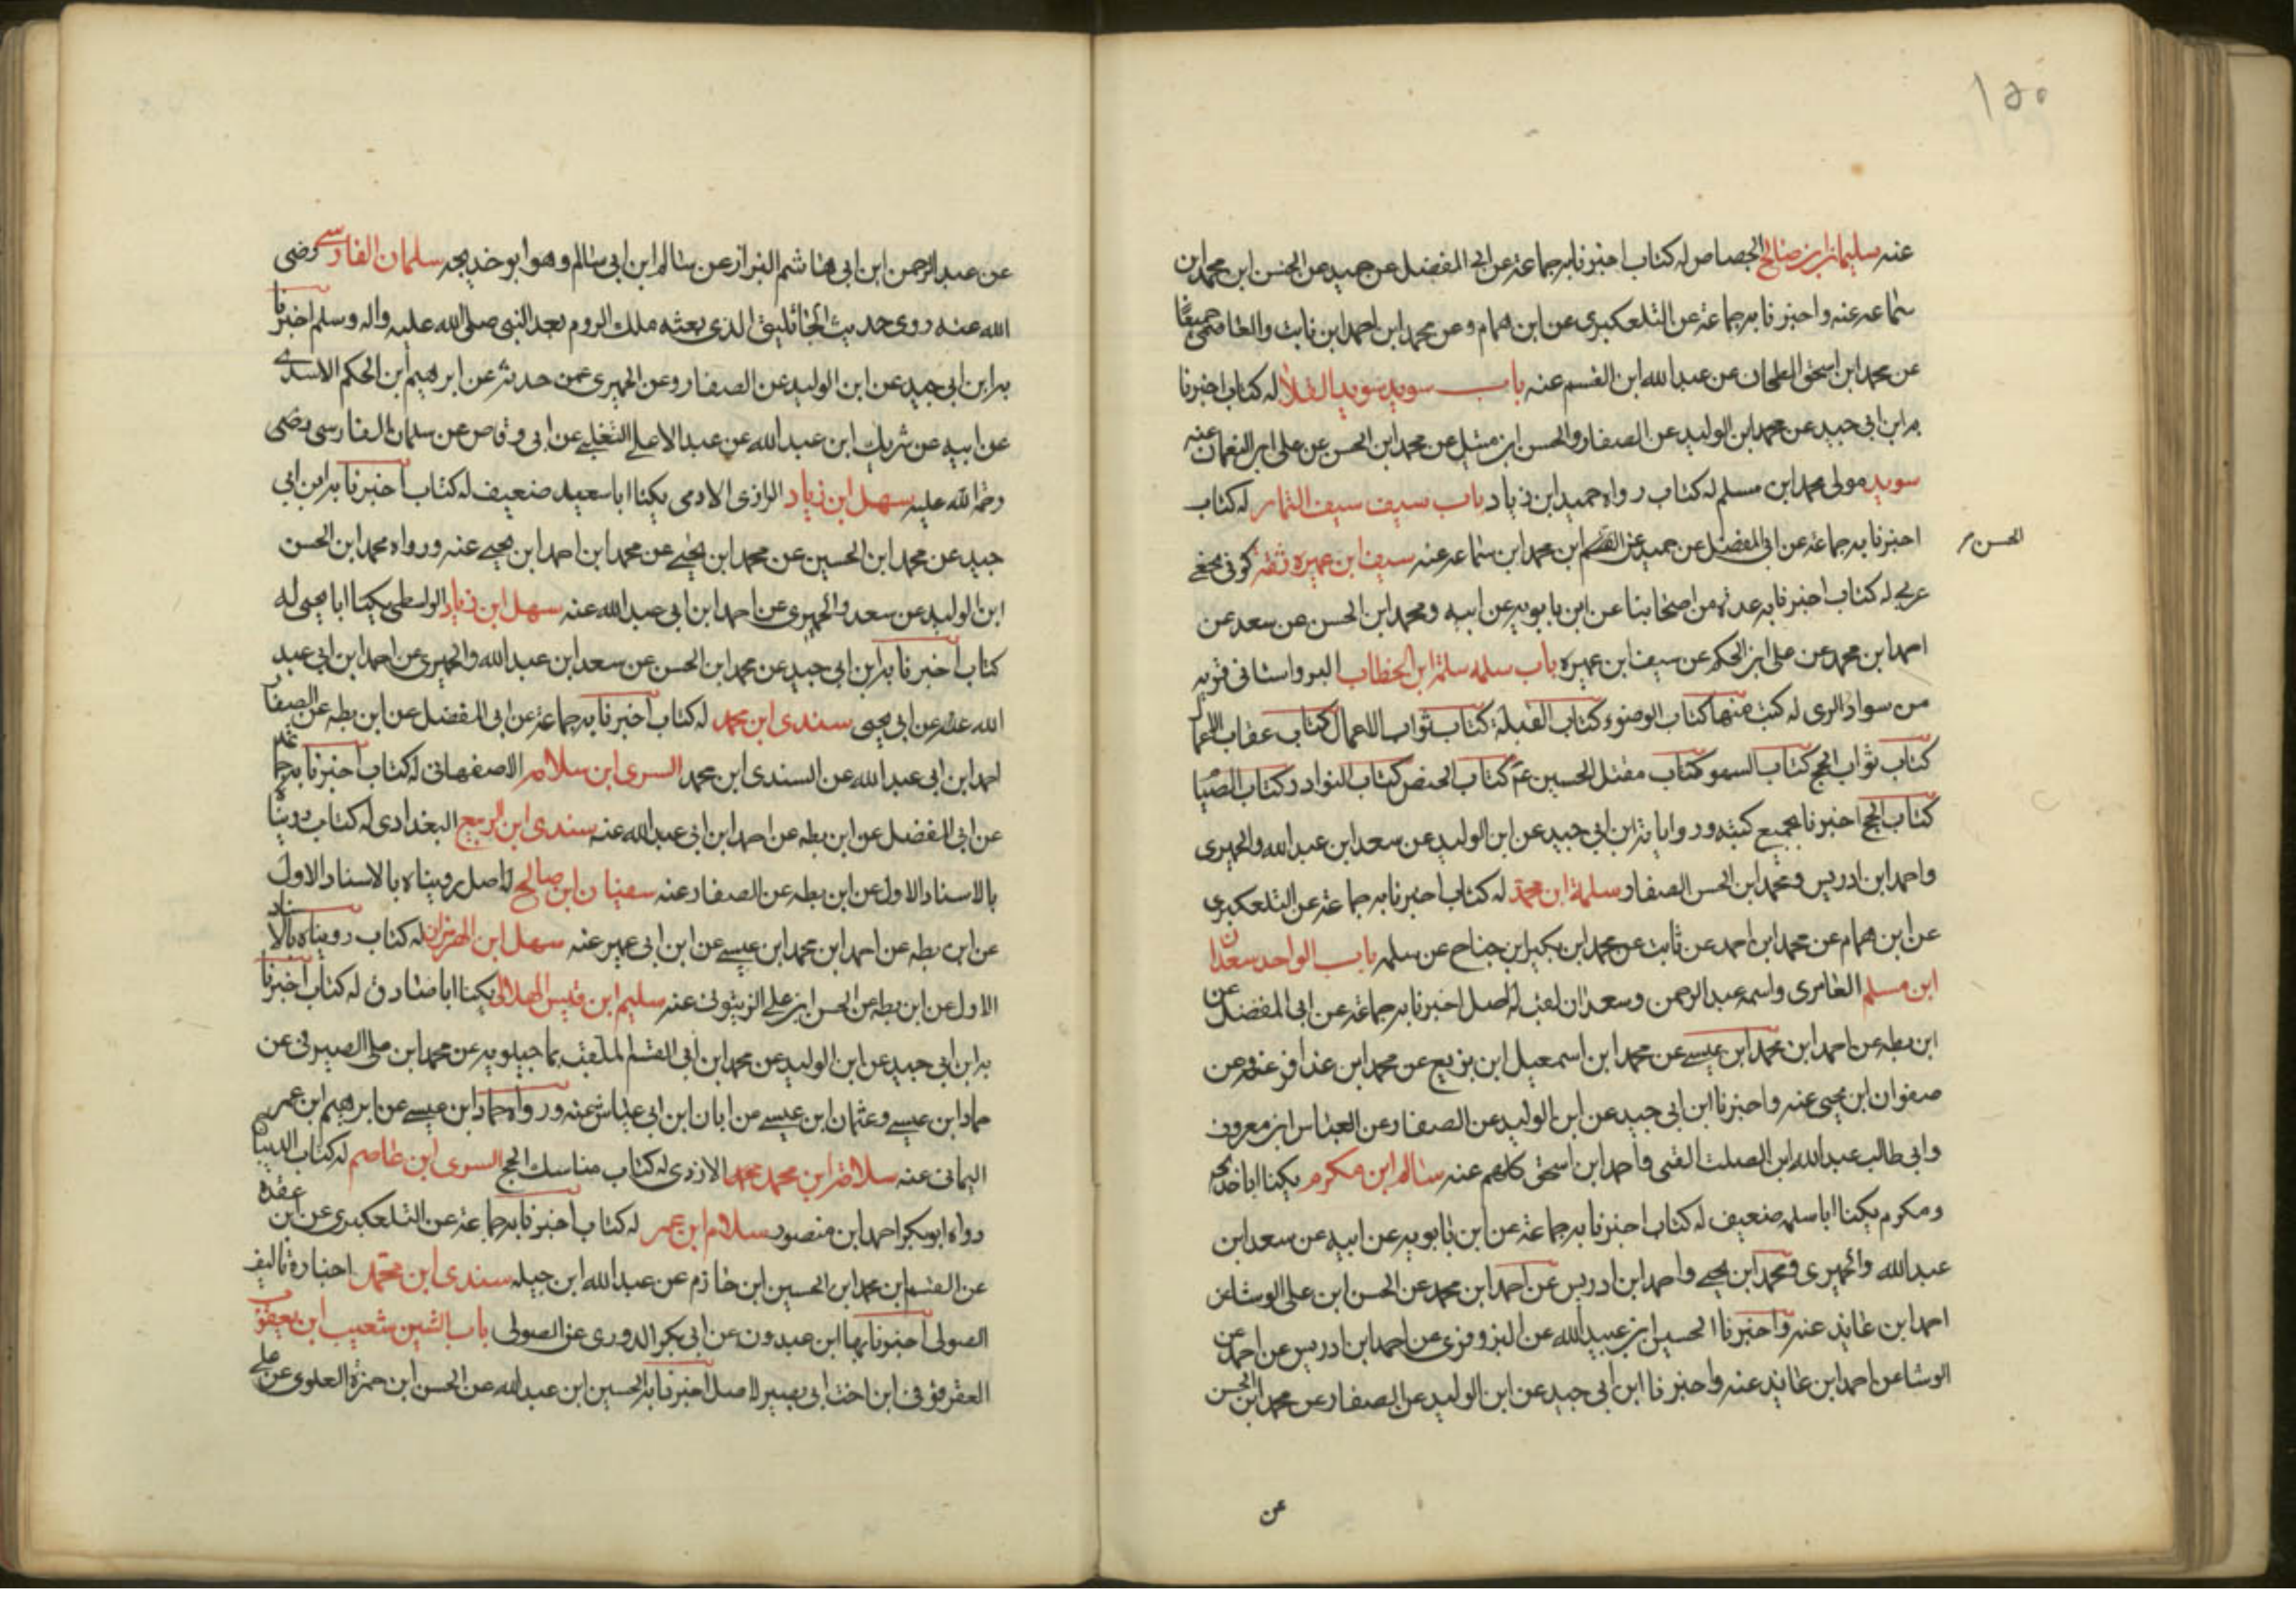 ١٥٥
عنه سليمان ابن صالح الجصاص له كتاب اخبرنا به جماعة عن ابي المفضل عن حميد عن الحسن ابن محمد ابن
سماعه عنه واخبرنا به جماعة عن التلعكبرى عن ابن همام وعن محمد ابن احمد ابن ثابت والعاصمى جميعًا
عن محمد ابن اسحق الطحان عن عبدالله ابن القسم عنه باب سويد سويد القلا له كتاب اخبرنا
به ابن ابى جيد عن محمد ابن الوليد عن الصفار والحسن ابن متيل عن محمد ابن الحسن عن على ابن النعمان عنه
سويد مولى محمد ابن مسلم له كتاب رواه حميد ابن زياد باب سيف سيف التمار له كتاب
اخبرنا به جماعة عن ابى المفضل عن حميد عن القسم ابن محمد ابن سماعه عنه سيف ابن عميره ثقة كوفى نخعى
الحسن
عربي له كتاب اخبرنا به عدة من اصحابنا عن ابن بابويه عن ابيه ومحمد ابن الحسن عن سعد عن
احمد ابن محمد عن على ابن الحكم عن سيف ابن عميره باب سلمه سلمة ابن الخطاب البرواستانى قريه
من سواد الرى له كتب منها كتاب الوضوء كتاب القبلة كتاب ثواب الاعمال كتاب عقاب الاعما
كتاب ثواب الحج كتاب السهو كتاب مقتل الحسين عم كتاب الحيض كتاب النوادر كتاب الصيا
كتاب الحج اخبرنا بجميع كتبه ورواياته ابن ابى جيد عن ابن الوليد عن سعد ابن عبدالله والحميرى
واحمد ابن ادريس ومحمد ابن الحسن الصفار سلمة ابن محمد له كتاب اخبرنا به جماعة عن التلعكبرى
عن ابن همام عن محمد ابن احمد عن ثابت عن محمد ابن بكير ابن جناح عن سلمه باب الواحد سعدان
ابن مسلم العامرى واسمه عبدالرحمن وسعدان لقب له اصل اخبرنا به جماعة عن ابى المفضل عن
ابن بطه عن احمد ابن محمد ابن عيسى عن محمد ابن اسمعيل ابن بزيع عن محمد ابن عذافر عنه وعن
صفوان ابن يحيى عنه واخبرنا ابن ابى جيد عن ابن الوليد عن الصفار عن العباس ابن معروف
وابى طالب عبدالله ابن الصلت القمى واحمد ابن اسحق كلهم عنه سالم ابن مكرم يكنا ابا خديجه
ومكرم يكنا ابا سلمه ضعيف له كتاب اخبرنا به جماعة عن ابن بابويه عن ابيه عن سعد ابن
عبدالله والحميرى ومحمد ابن يحيى واحمد ابن ادريس عن احمد ابن محمد عن الحسن ابن على الوشا عن
احمد ابن عايذ عنه واخبرنا الحسين ابن عبيدالله عن البزوفرى عن احمد ابن ادريس عن احمد عن
الوشا عن احمد ابن عايذ عنه واخبرنا ابن ابى جيد عن ابن الوليد عن الصفار عن محمد ابن الحسن
عن
عن عبدالرحمن ابن ابى هاشم البزاز عن سالم ابن ابى سالم وهو ابو خديجه سلمان الفارسى رضى
الله عنه روى حديث الجاثليق الذى بعثه ملك الروم بعد النبى صلى الله عليه واله وسلم اخبرنا
به ابن ابى جيد عن ابن الوليد عن الصفار وعن الحميرى عمن حدثه عن ابرهيم ابن الحكم الاسدى
عن ابيه عن شريك ابن عبدالله عن عبدالاعلى التغلبى عن ابى وقاص عن سلمان الفارسى رضى
رحمة الله عليه سهل ابن زياد الرازى الادمى يكنا ابا سعيد ضعيف له كتاب اخبرنا به ابن ابى
جيد عن محمد ابن الحسين عن محمد ابن يحيى عن محمد ابن احمد ابن يحيى عنه ورواه محمد ابن الحسن
ابن الوليد عن سعد والحميرى عن احمد ابن ابى عبدالله عنه سهل ابن زياد الواسطى يكنا ابا يحيى له
كتاب اخبرنا به ابن ابى جيد عن محمد ابن الحسن عن سعد ابن عبدالله والحميرى عن احمد ابن ابى عبد
الله عنه عن ابى يحيى سندى ابن محمد له كتاب اخبرنا به جماعة عن ابى المفضل عن ابن بطه عن الصفار عن
احمد ابن ابى عبدالله عن السندى ابن محمد السرى ابن سلامه الاصفهانى له كتاب اخبرنا به جماعة
عن ابى المفضل عن ابن بطه عن احمد ابن ابى عبدالله عنه سندى ابن الربيع البغدادى له كتاب روينا
بالاسناد الاول عن ابن بطه عن الصفار عنه سفيان ابن صالح له اصل رويناه بالاسناد الاول
عن ابن بطه عن احمد ابن محمد ابن عيسى عن ابن ابى عمير عنه سهل ابن الهرمزان له كتاب رويناه بالاسناد
الاول عن ابن بطه عن الحسن ابن على الزيتونى عنه سليم ابن قيس الهلالى يكنا ابا صادق له كتاب اخبرنا
به ابن ابى جيد عن ابن الوليد عن محمد ابن ابى القسم الملقب بماجيلويه عن محمد ابن على الصيرفى عن
حماد ابن عيسى وعثمان ابن عيسى عن ابان ابن ابى عياش عنه ورواه حماد ابن عيسى عن ابرهيم ابن عمر
اليمانى عنه سلامة ابن محمد محمد الازدى له كتاب مناسك الحج السرى ابن عاصم له كتاب الديبا
رواه ابوبكر احمد ابن منصور سلام ابن عمر له كتاب اخبرنا به جماعة عن التلعكبرى عن ابن عقده
عن القسم ابن محمد ابن الحسين ابن حازم عن عبدالله ابن جبله سندى ابن محمد اخباره تاليف
الصولى اخبرنا بها ابن عبدون عن ابى بكر الدورى عن الصولى باب الشين شعيب ابن يعقوب
العقرقوفى ابن اخت ابى بصير له اصل اخبرنا به الحسين ابن عبدالله عن الحسن ابن حمزة العلوى عن على